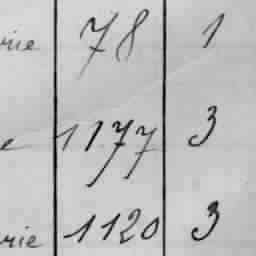 rie 78 1
e 1177 3
rie 1120 3